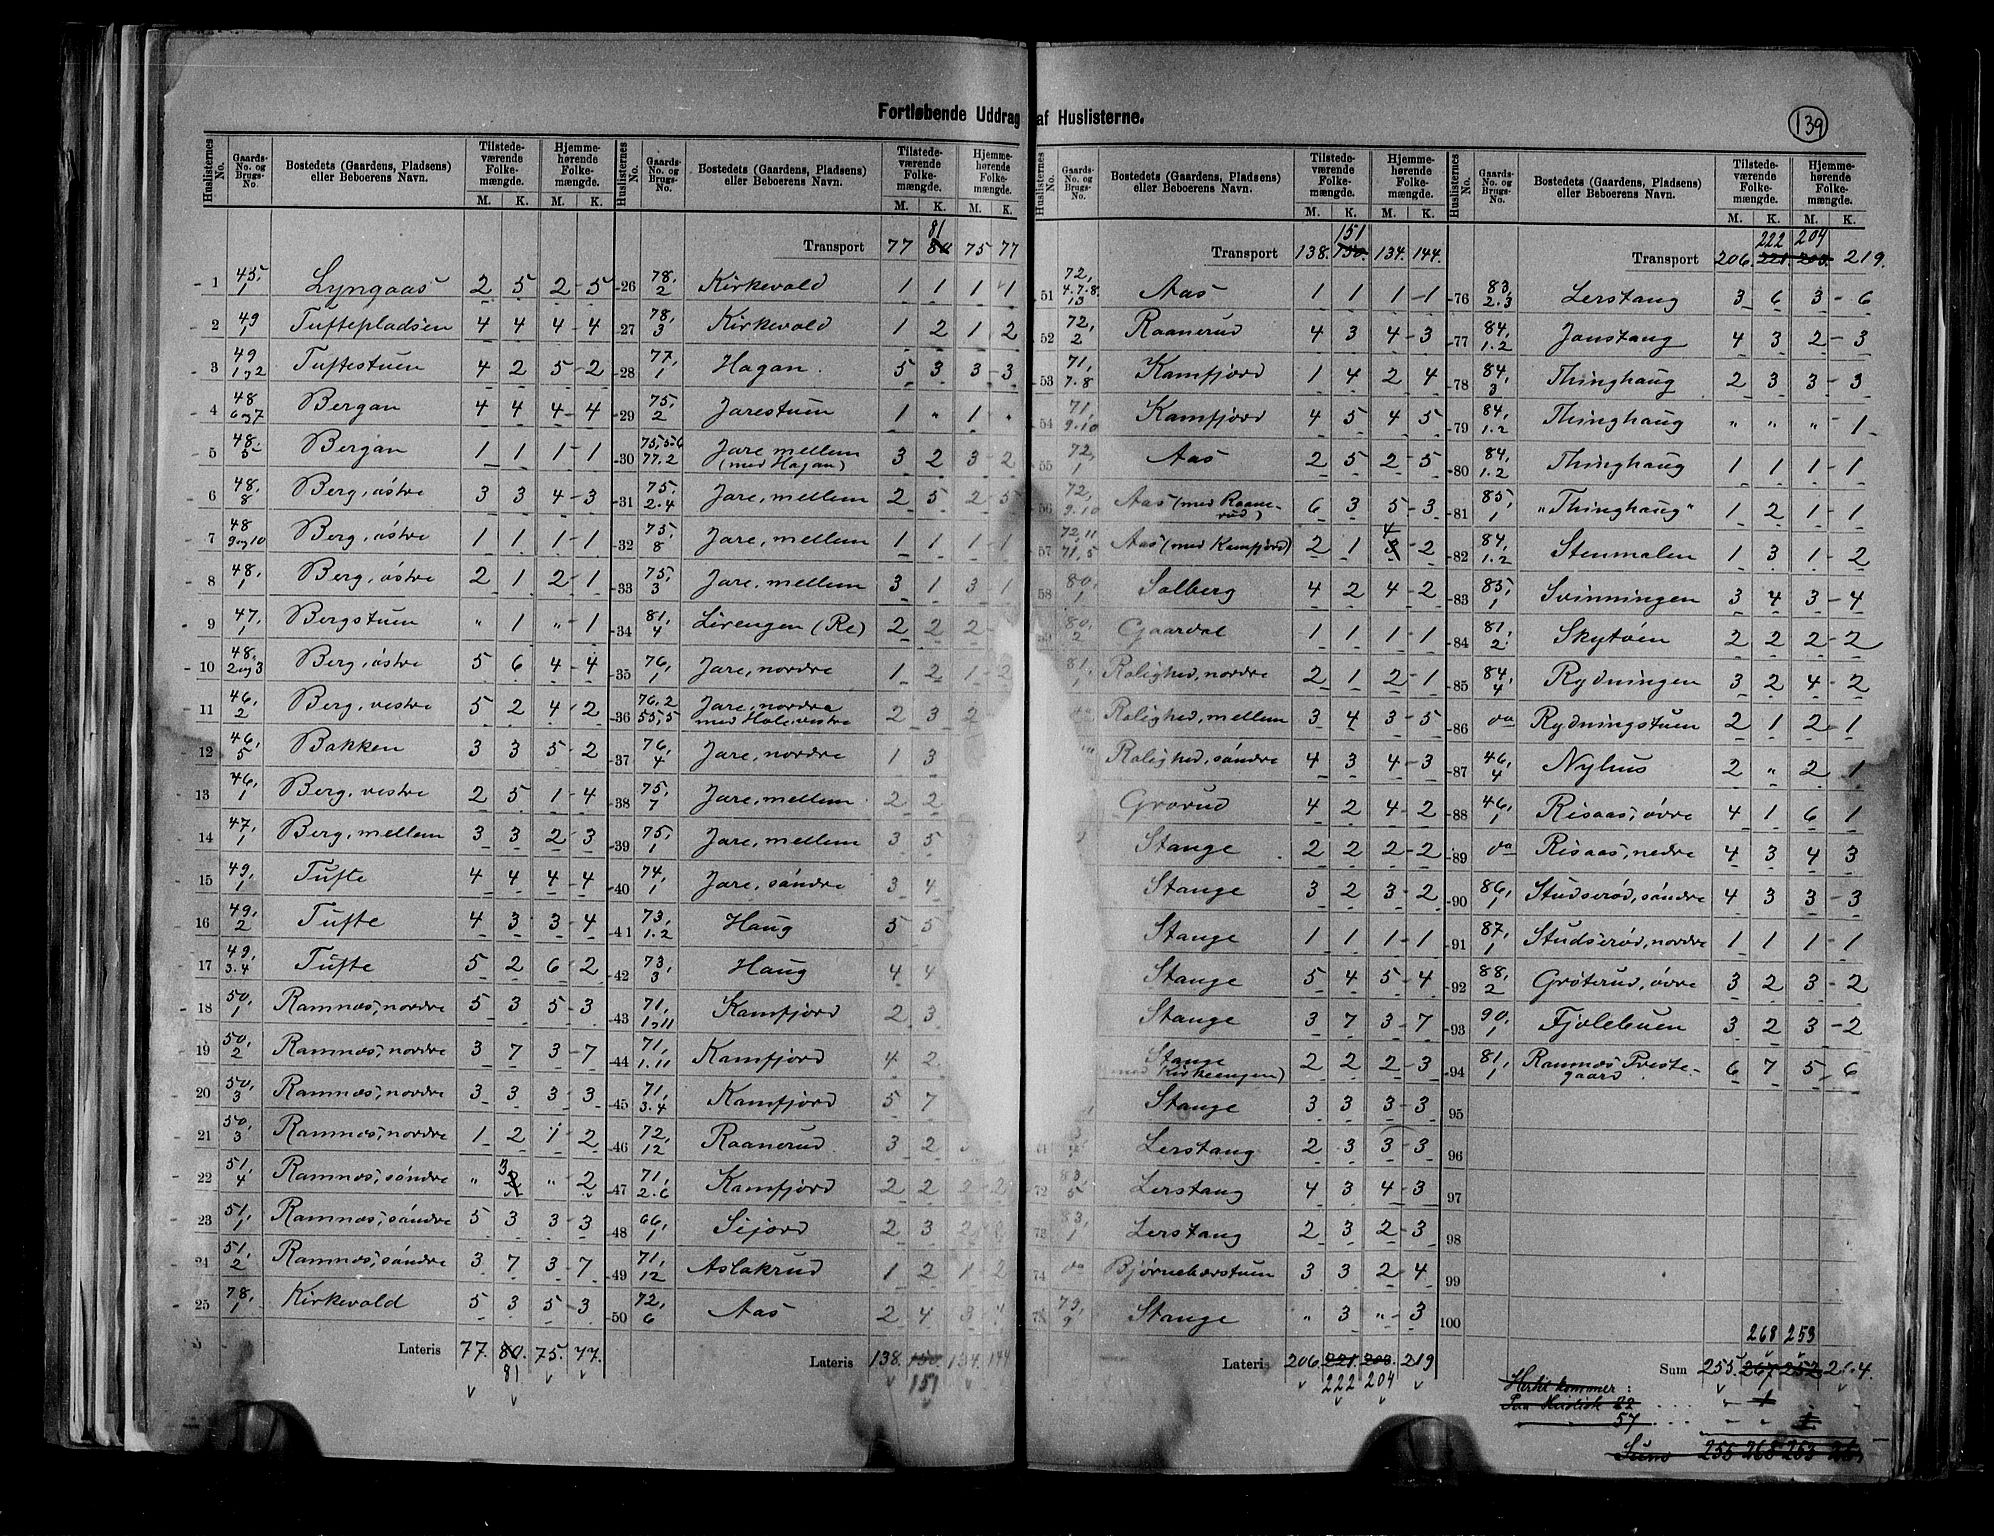 139
Fortløbende Uddrag af Huslisterne.
Huslisternes No. Gaards-No. og Brugs-No. Bostedets (Gaardens, Pladsens) eller Beboerens Navn. Tilstede-værende Folke-mængde. M. K. Hjemme-hørende Folke-mængde. M. K.
1 45, 1 Lyngaas 2 5 2 5
2 49 1 Tuftepladsen 4 4 4 4
3 49 1 og 2 Tuftestuen 4 2 5 2
4 48 6 og 7 Bergan 4 4 4 4
5 48, 5 Bergan 1 1 1 1
6 48, 8 Berg, østre 3 3 4 3
7 48 9 og 10 Berg, østre 1 1 1 1
8 48, 1 Berg, østre 2 1 2 1
9 47, 1 Bergstuen " 1 " 1
10 48, 2 og 3 Berg, østre 5 6 4 4
11 46, 2 Berg, vestre 5 2 4 2
12 46, 5 Bakken 3 3 5 2
13 46, 1 Berg, vestre 2 5 1 4
14 47, 1 Berg, mellem 3 3 2 3
15 49, 1 Tufte 4 4 4 4
16 49, 2 Tufte 4 3 3 4
17 49, 3.4 Tufte 5 2 6 2
18 50, 1 Ramnæs, nordre 5 3 5 3
19 50, 2 Ramnæs, nordre 3 7 3 7
20 50, 3 Ramnæs, nordre 3 3 3 3
21 50, 3 Ramnæs, nordre 1 2 1 2
22 51, 4 Ramnæs, søndre " 3 2 " 2
23 51, 1 Ramnæs, søndre 5 3 3 3
24 51, 2 Ramnæs, søndre 3 7 3 7
25 78, 1 Kirkevold 5 3 5 3
Lateris 77. 80. 75. 77.
81
Huslisternes No. Gaards-No. og Brugs-No. Bostedets (Gaardens, Pladsens) eller Beboerens Navn. Tilstede-værende Folke-mængde. M. K. Hjemme-hørende Folke-mængde. M. K.
81
Transport 77 80 75 77
26 78, 2 Kirkevold 1 1 1 1
27 78, 3 Kirkevold 1 2 1 2
28 77, 1 Hagan. 5 3 3 3
29 75, 2 Jarestuen 1 " 1 "
30 75, 5.6 77.2 Jare mellem (med Hagan) 3 2 3 2
31 75, 2.4 Jare, mellem 2 5 2 5
32 75, 8 Jare, mellem 1 1 1 1
33 75, 3 Jare, mellem 3 1 3 1
34 81, 4 Lirengen (Re) 2 2 2
35 76, 1 Jare, nordre 1 2 1 2
36 76, 2 55, 5 Jare, nordre med Hole, vestre 2 3 2
37 76, 4 Jare, nordre 1 3
38 75, 7 Jare, mellem 2 2
39 75, 1 Jare, mellem 3 5
40 74, 1 Jare, søndre 3 4
41 73, 1.2 Haug 5 5
42 73, 3 Haug 4 4
43 71, 1 og 11 Kamfjord 2 3
44 71, 1.11 Kamfjord 4 2
45 71, 3.4 Kamfjord 5 7
46 72, 12 Raanerud 3 2
47 71, 2.6 Kamfjord 2 2 2 2
48 66, 1 Sijord 2 3 2
49 71, 12 Aslakrud 1 2 1 2
50 72, 6 Aas 2 4 3 4
Lateris 138. 150. 134. 144
151
Huslisternes No. Gaards-No. og Brugs-No. Bostedets (Gaardens, Pladsens) eller Beboerens Navn. Tilstede-værende Folke-mængde. M. K. Hjemme-hørende Folke-mængde. M. K.
151
Transport 138. 150. 134. 144.
51 72, 4.7.8, 13 Aas 1 1 1 1
52 72, 2 Raanerud 4 3 4 3
53 71, 7.8 Kamfjord 1 4 2 4
54 71, 9.10 Kamfjord 4 5 4 5
55 72, 1 Aas 2 5 2 5
56 72, 9.10 Aas (med Raanerud) 6 3 5 3
57 72, 11 71, 5 Aas (med Kamfjord) 2 1 4 3 2
58 80, 1 Solberg 4 2 4 2
80, 2 Gaardal 1 1 1 1
81, Rolighed, nordre 2 1 2 1
Rolighed, mellem 3 4 3 5
Rolighed, søndre 4 3 4 3
Grorud 4 2 4 2
Stange 2 2 2 2
Stange 3 2 3 2
Stange 1 1 1 1
Stange 5 4 5 4
Stange 3 7 3 7
Stange med Kirkeengen) 2 2 2 3
Stange 3 3 3 3
Lerstang 2 3 3 3
72 83, 5 Lerstang 4 3 4 3
73 83, 1 Lerstang 2 3 2 3
74 do Bjørnebærstuen 3 3 2 4
75 79, 9 Stange " 3 " 3
Lateris 206. 221. 203. 219
222 204
Huslisternes No. Gaards-No. og Brugs-No. Bostedets (Gaardens, Pladsens) eller Beboerens Navn. Tilstede-værende Folke-mængde. M. K. Hjemme-hørende Folke-mængde. M. K.
222 204
Transport 206. 221 203. 219.
76 83, 2.3 Lerstang 3 6 3 6
77 84, 1.2 Jonstang 4 3 2 3
78 84, 3 Thinghaug 2 3 3 3
79 84, 1.2 Thinghaug " " " 1
80 84, 1.2 Thinghaug 1 1 1 1
81 85, 1 "Thinghaug" 1 2 1 1
82 84, 1.2 Stenmalen 1 3 1 2
83 85, 1 Svinningen 3 4 3 4
84 81, 2. Skytøen 2 2 2 2
85 84, 4 Rydningen 3 2 4 2
86 do Rydningstuen 2 1 2 1
87 46, 4 Nyhus 2 " 2 1
88 46, 1 Risaas, øvre 4 1 6 1
89 do Risaas, nedre 4 3 4 3
90 86, 1 Studserød, søndre 4 3 3 3
91 87, 1 Studserød, nordre 1 1 1 1
92 88, 2 Grøterud, øvre 3 2 3 2
93 90, 1 Fjølebuen 3 2 3 2
94 81, 1 Ramnæs Prestegaard 6 7 5 6
95
96
97
98
99
100
268 253
Sum 255. 267 252
Hertil kommer:
Paa Husliste 22 . . . " 1 " "
" " 57 . . . " " 1
Suma 255 268 253